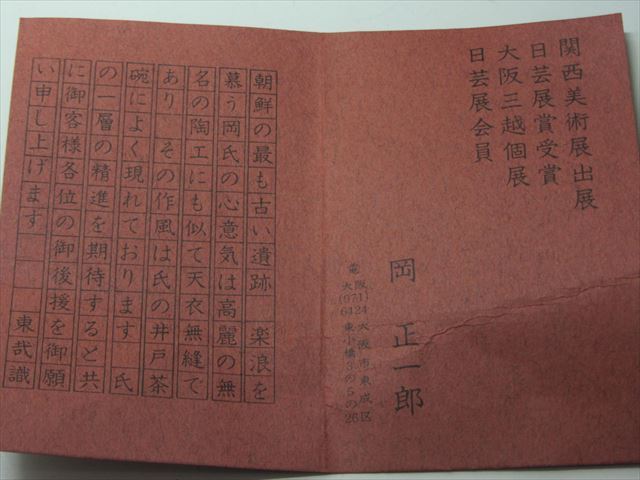 関西美術展出展
日芸展賞受賞
大阪三越個展
日芸展会員
岡 正一郎
大阪市東成区東小橋3の5の26
電大阪(971)6124
朝鮮の最も古い遺跡 楽浪を
慕う岡氏の心意気は高麗の無
名の陶工にも似て天衣無縫で
あり その作風は氏の井戸茶
碗によく現れております 氏
の一層の精進を期待すると共
に御客様各位の御後援を御願
い申し上げます 東哉識